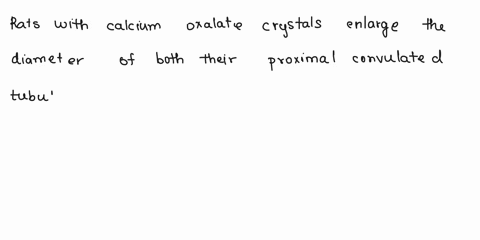 Rats with calcium oxalate crystals enlarge the
diameter of both their proximal convulated
tubu'